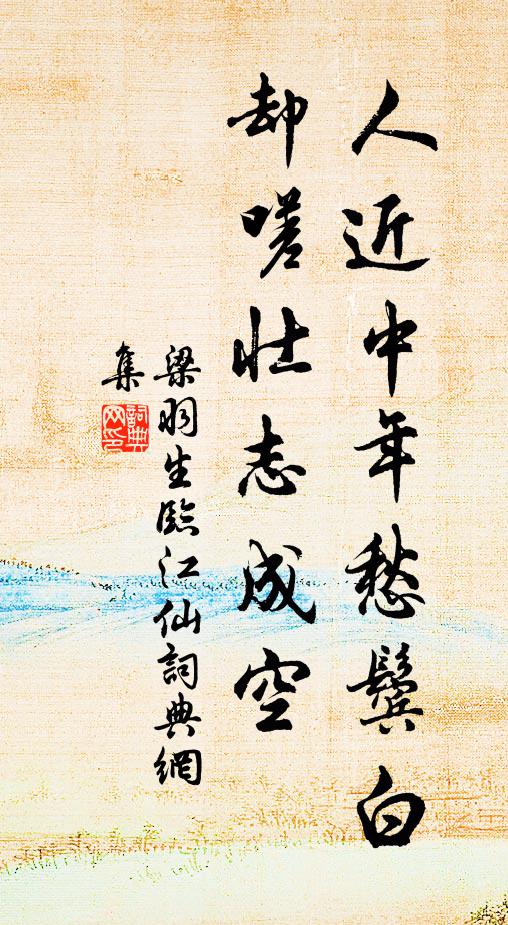 人近中年愁鬓白
却嗟壮志成空
梁羽生臨江仙詞典網
集
詞典网印